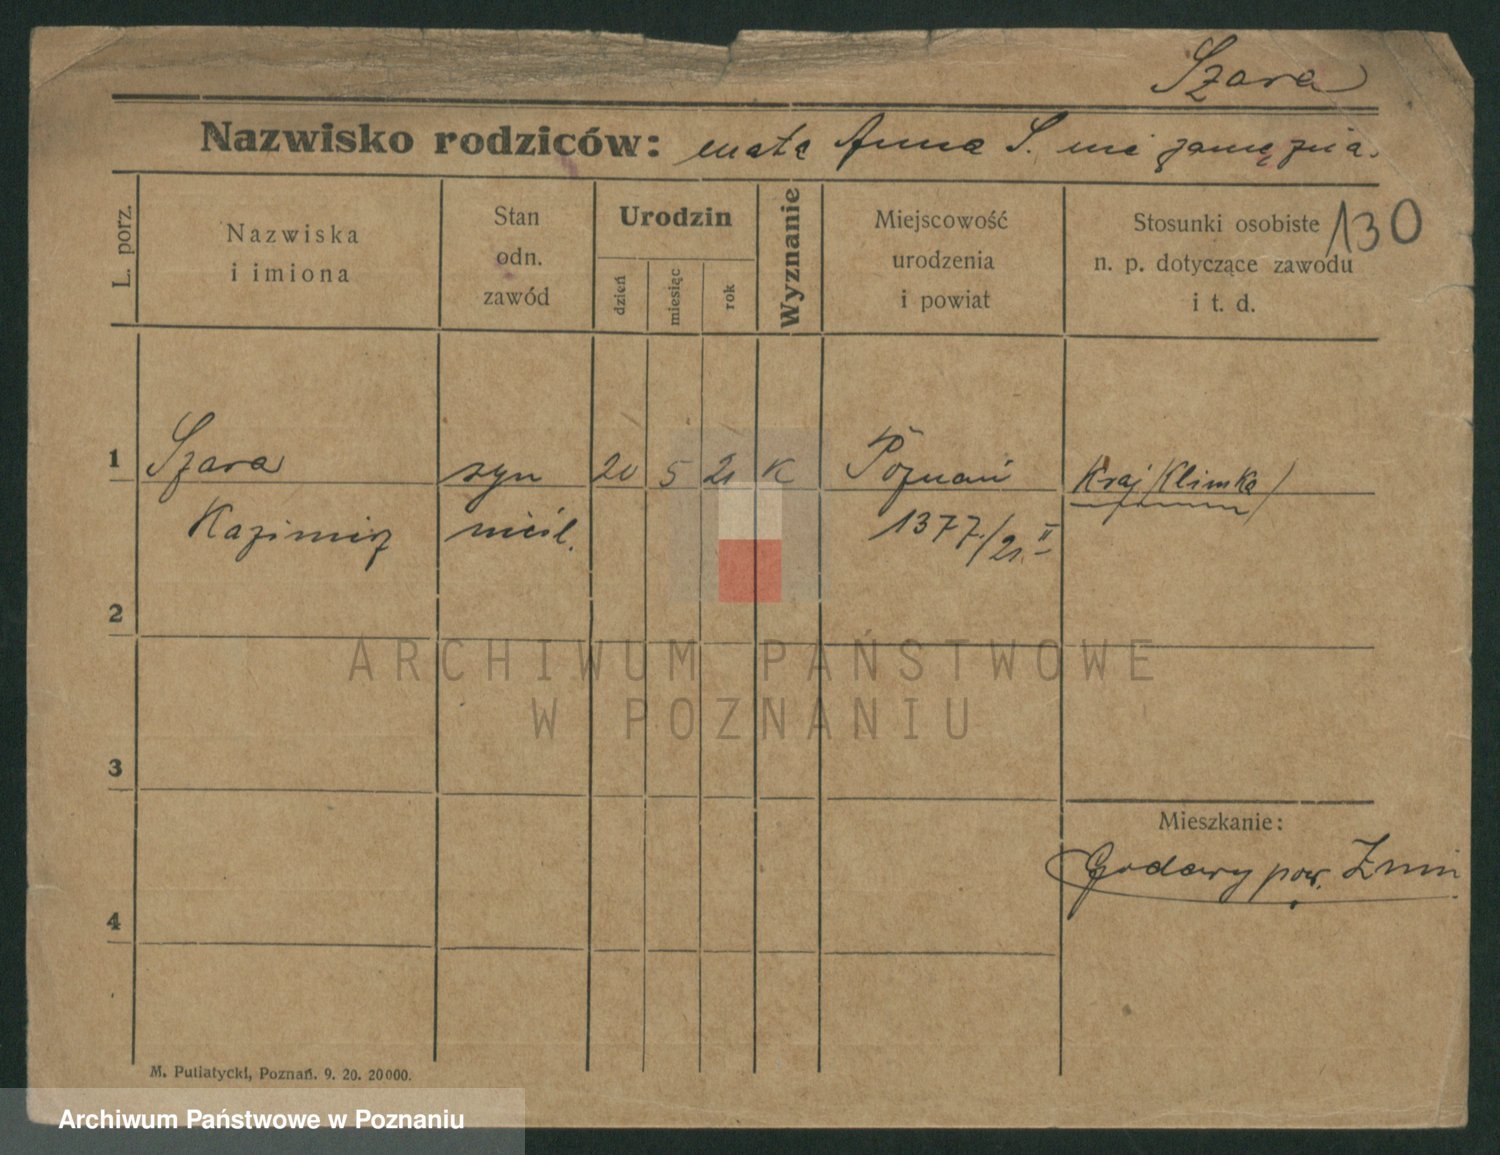 Szara
Nazwisko rodziców: matc Anna S. nie zamężna.
L. porz.
Nazwiska
i imiona
Stan
odn.
zawód
Urodzin
dzień
miesiąc
rok
Wyznanie
Miejscowość
urodzenia
i powiat
Stosunki osobiste
n. p. dotyczące zawodu
i t. d.
130
1 Szara syn 20 5 21 K Poznań Kraj (Klimka)
Kazimierz nieśl. 1377/21 II
2
ARCHIWUM PAŃSTWOWE
W POZNANIU
3
Mieszkanie:
Godawy pow. Żnin
4
M. Putiatycki, Poznań. 9. 20. 20000.
Archiwum Państwowe w Poznaniu